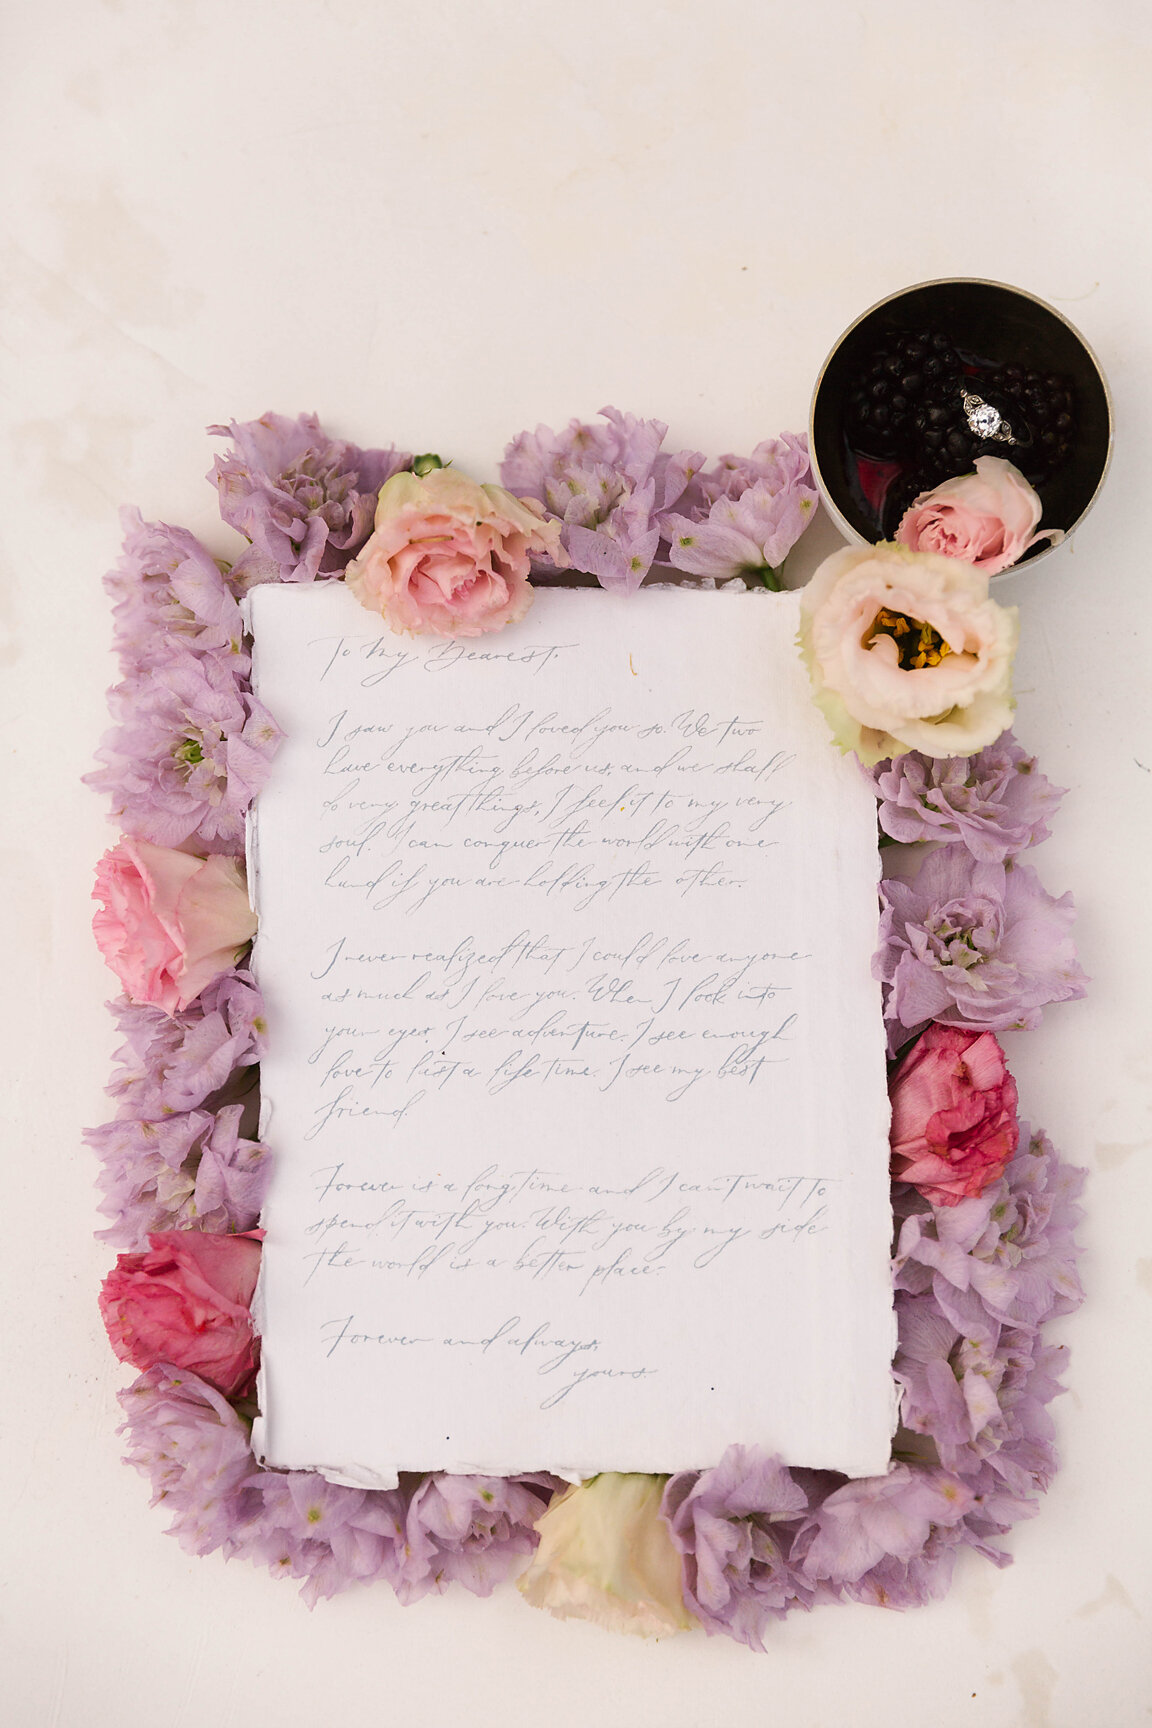 To My Dearest,
I saw you and I loved you so. We two
have everything before us, and we shall
do very great things, I feel it to my very
soul. I can conquer the world with one
hand if you are holding the other.
I never realized that I could love anyone
as much as I love you. When I look into
your eyes, I see adventure. I see enough
love to last a life time. I see my best
friend.
Forever is a long time and I can't wait to
spend it with you. With you by my side
the world is a better place.
Forever and always,
yours.